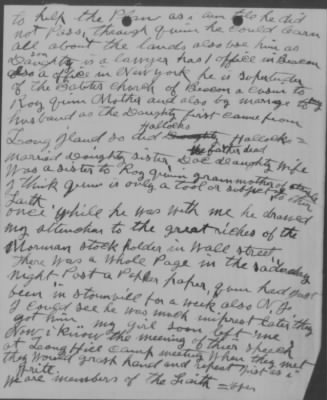 to help the Plan as i am told he did
not Pass, through quinn he could learn
all about the lands also use him as
Daughty is a lawyer has 1 office in Beacon
also a office in New York he is Superintender
of the Babtis Church of Beacon a Cusin to
Roy quinn Mother and also by marage to my
husband as the Daughty first came from
Hallocks
Long iland so did Hallocks =
the father dead
married Daughty sister, Doc daughty wife
was a sister to Roy quinn grannmother
I think quinn is only a tool or subject to their
Faith
once while he was with me he drawed
my attenchan to the great riches of the
Mormon stock holder in Wall street
There was a Whole Page in the saderday
night Post a Paper, quinn had just
been in stounvill for a week also N.Y.
I could see he was much intrest later they
got him, my girl soon left me
Now i know the meening of their speech
at Long Hill Camp meeting When they met
they would grasp hand and repeat just as i
write
We are members of the Faith =